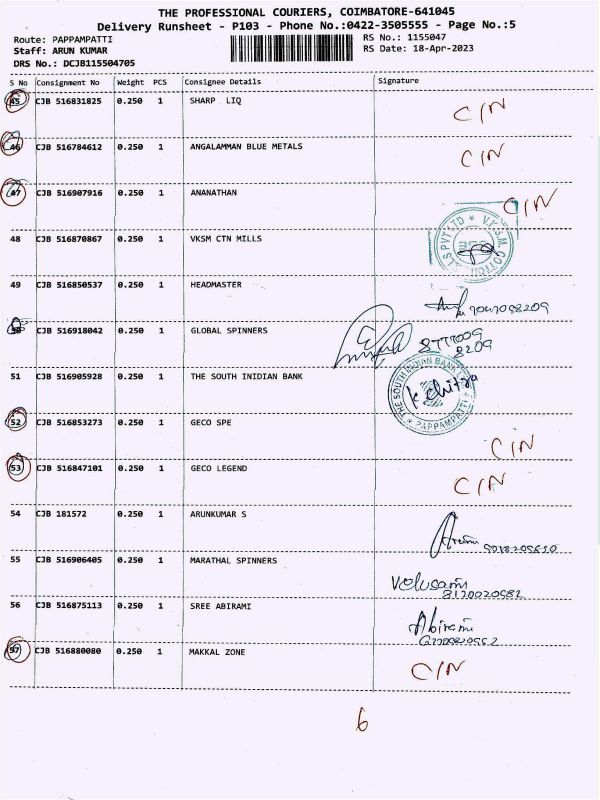 THE PROFESSIONAL COURIERS, COIMBATORE-641045
Delivery Runsheet - P103 - Phone No.:0422-3505555 - Page No.:5
Route: PAPPAMPATTI RS No.: 1155047
Staff: ARUN KUMAR RS Date: 18-Apr-2023
DRS No.: DCJB115504705
S No Consignment No Weight PCS Consignee Details Signature
45 CJB 516831825 0.250 1 SHARP LIQ C/N
46 CJB 516784612 0.250 1 ANGALAMMAN BLUE METALS C/N
47 CJB 516907916 0.250 1 ANANATHAN C/N
48 CJB 516870867 0.250 1 VKSM CTN MILLS
49 CJB 516850537 0.250 1 HEADMASTER
50 CJB 516918042 0.250 1 GLOBAL SPINNERS
8209
51 CJB 516905928 0.250 1 THE SOUTH INIDIAN BANK
THE SOUTH INDIAN BANK
K. Chitra
PAPPAMPATTI
52 CJB 516853273 0.250 1 GECO SPE C/N
53 CJB 516847101 0.250 1 GECO LEGEND C/N
54 CJB 181572 0.250 1 ARUNKUMAR S
55 CJB 516906405 0.250 1 MARATHAL SPINNERS
Velusami
56 CJB 516875113 0.250 1 SREE ABIRAMI Abirami
57 CJB 516880080 0.250 1 MAKKAL ZONE C/N
6